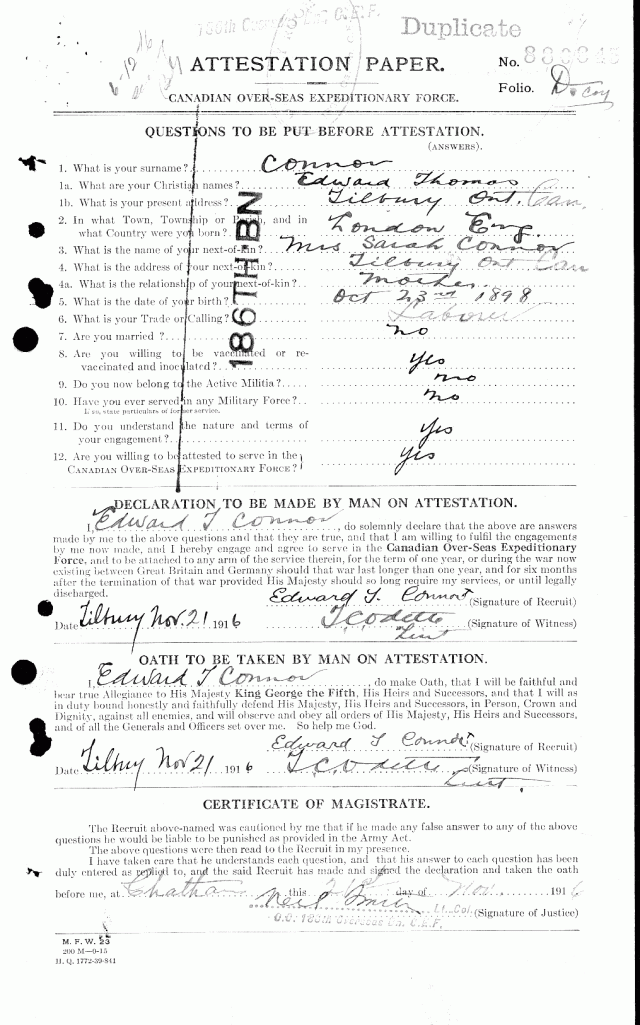 Duplicate
ATTESTATION PAPER.
No.
Folio.
CANADIAN OVER-SEAS EXPEDITIONARY FORCE.
QUESTIONS TO BE PUT BEFORE ATTESTATION.
(ANSWERS).
1. What is your surname? Connor
1a. What are your Christian names? Edward Thomas
1b. What is your present address? Tilbury Ont. Can.
2. In what Town, Township or Parish, and in
what Country were you born? London Eng.
3. What is the name of your next-of-kin? Mrs Sarah Connor
4. What is the address of your next-of-kin? Tilbury Ont Can
4a. What is the relationship of your next-of-kin? Mother
5. What is the date of your birth? Oct 23rd 1898
6. What is your Trade or Calling? Laborer
7. Are you married? no
8. Are you willing to be vaccinated or re-
vaccinated and inoculated? Yes
9. Do you now belong to the Active Militia? no
10. Have you ever served in any Military Force? no
If so, state particulars of former service.
11. Do you understand the nature and terms of
your engagement? Yes
12. Are you willing to be attested to serve in the
CANADIAN OVER-SEAS EXPEDITIONARY FORCE? Yes
186TH BN
DECLARATION TO BE MADE BY MAN ON ATTESTATION.
I, Edward T Connor, do solemnly declare that the above are answers
made by me to the above questions and that they are true, and that I am willing to fulfil the engagements
by me now made, and I hereby engage and agree to serve in the Canadian Over-Seas Expeditionary
Force, and to be attached to any arm of the service therein, for the term of one year, or during the war now
existing between Great Britain and Germany should that war last longer than one year, and for six months
after the termination of that war provided His Majesty should so long require my services, or until legally
discharged.
Edward T. Connor (Signature of Recruit)
Date Tilbury Nov. 21 1916 T C Odette Lieut (Signature of Witness)
OATH TO BE TAKEN BY MAN ON ATTESTATION.
I, Edward T Connor, do make Oath, that I will be faithful and
bear true Allegiance to His Majesty King George the Fifth, His Heirs and Successors, and that I will as
in duty bound honestly and faithfully defend His Majesty, His Heirs and Successors, in Person, Crown and
Dignity, against all enemies, and will observe and obey all orders of His Majesty, His Heirs and Successors,
and of all the Generals and Officers set over me. So help me God.
Edward T Connor (Signature of Recruit)
Date Tilbury Nov 21 1916 T C Odette Lieut (Signature of Witness)
CERTIFICATE OF MAGISTRATE.
The Recruit above-named was cautioned by me that if he made any false answer to any of the above
questions he would be liable to be punished as provided in the Army Act.
The above questions were then read to the Recruit in my presence.
I have taken care that he understands each question, and that his answer to each question has been
duly entered as replied to, and the said Recruit has made and signed the declaration and taken the oath
before me, at Chatham this 21st day of Nov. 1916
Neil Smith Lt. Col. (Signature of Justice)
O.C. 186th Overseas Bn. C.E.F.
M. F. W. 23
200 M—9-15
H. Q. 1772-39-841